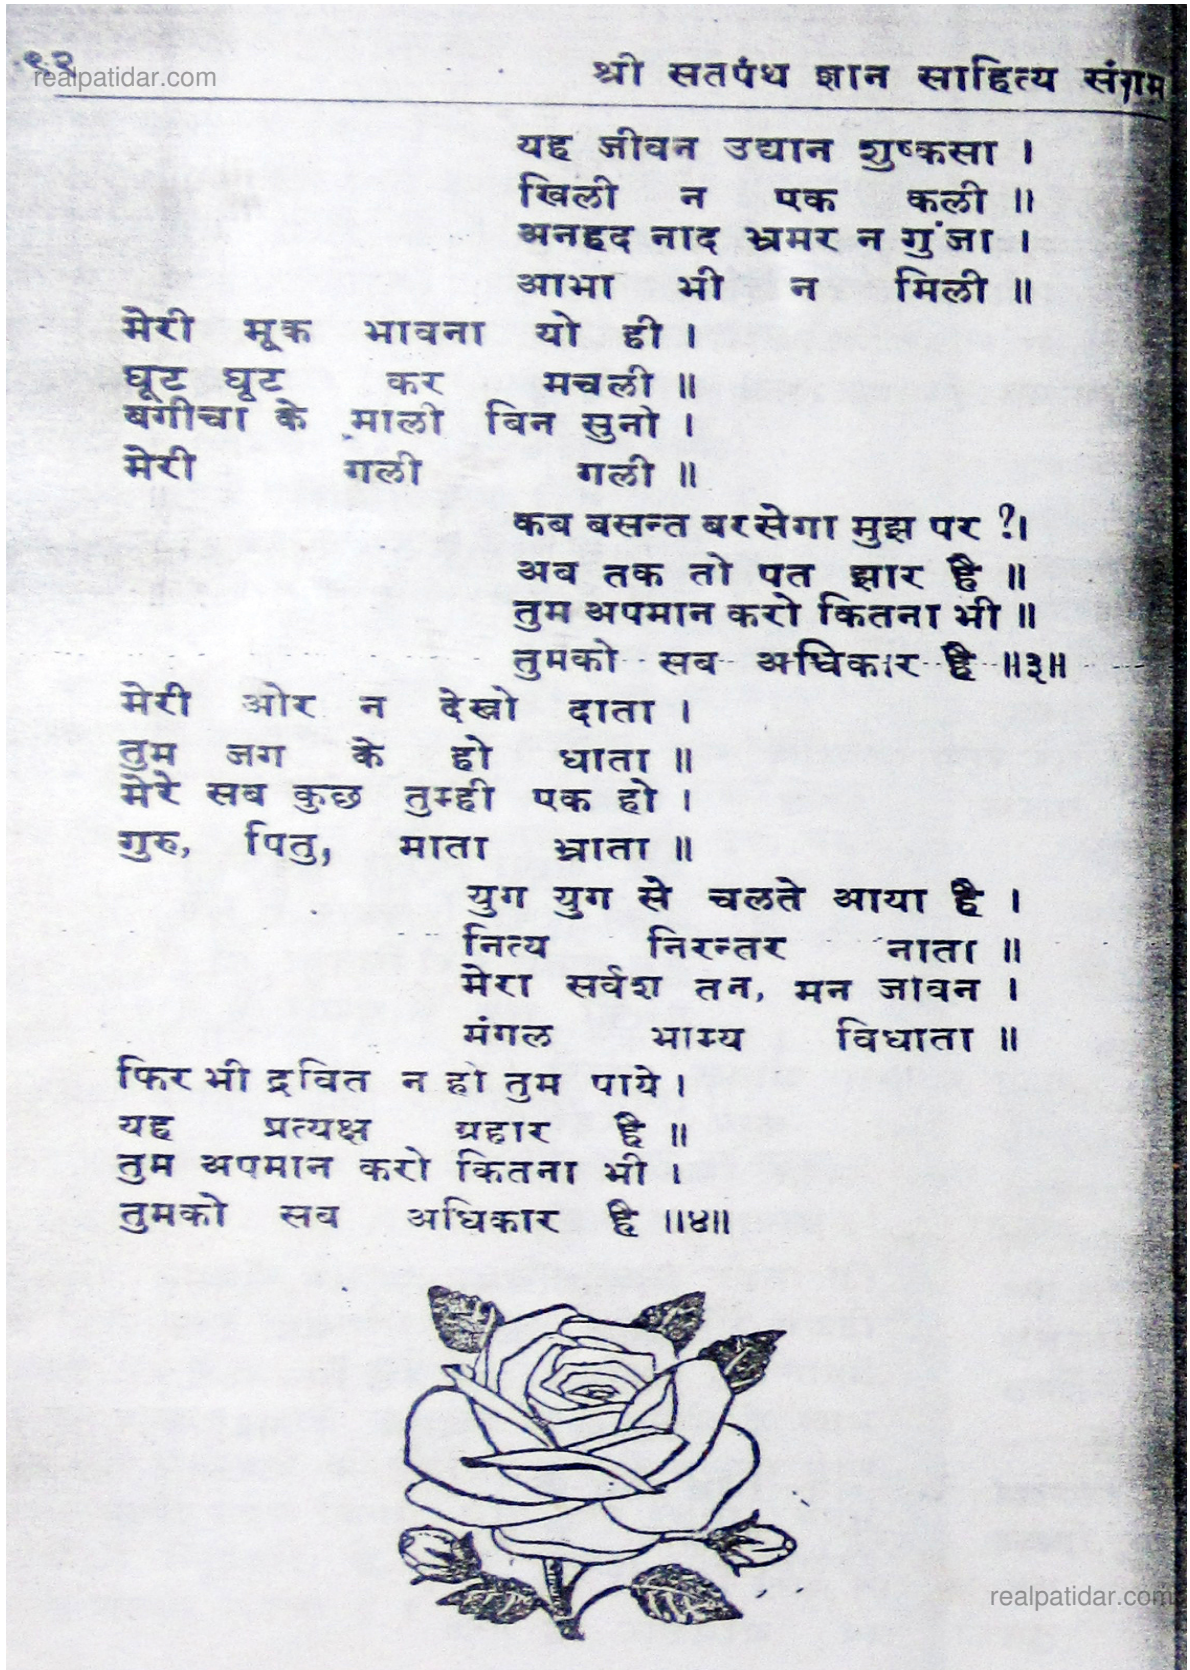 ९२
realpatidar.com
श्री सतपंथ ज्ञान साहित्य संगम
यह जीवन उद्यान शुष्कसा ।
खिली न एक कली ॥
अनहद नाद भ्रमर न गुंजा ।
आभा भी न मिली ॥
मेरी मूक भावना यो ही ।
घूट घूट कर मचली ॥
बगीचा के माली बिन सुनो ।
मेरी गली गली ॥
कब बसन्त बरसेगा मुझ पर ?।
अब तक तो पत झार है ॥
तुम अपमान करो कितना भी ॥
तुमको सब अधिकार है ॥३॥
मेरी ओर न देखो दाता ।
तुम जग के हो धाता ॥
मेरे सब कुछ तुम्ही एक हो ।
गुरु, पितु, माता भ्राता ॥
युग युग से चलते आया है ।
नित्य निरन्तर नाता ॥
मेरा सर्वश तन, मन जीवन ।
मंगल भाग्य विधाता ॥
फिर भी द्रवित न हो तुम पाये ।
यह प्रत्यक्ष प्रहार है ॥
तुम अपमान करो कितना भी ।
तुमको सब अधिकार है ॥४॥
realpatidar.com